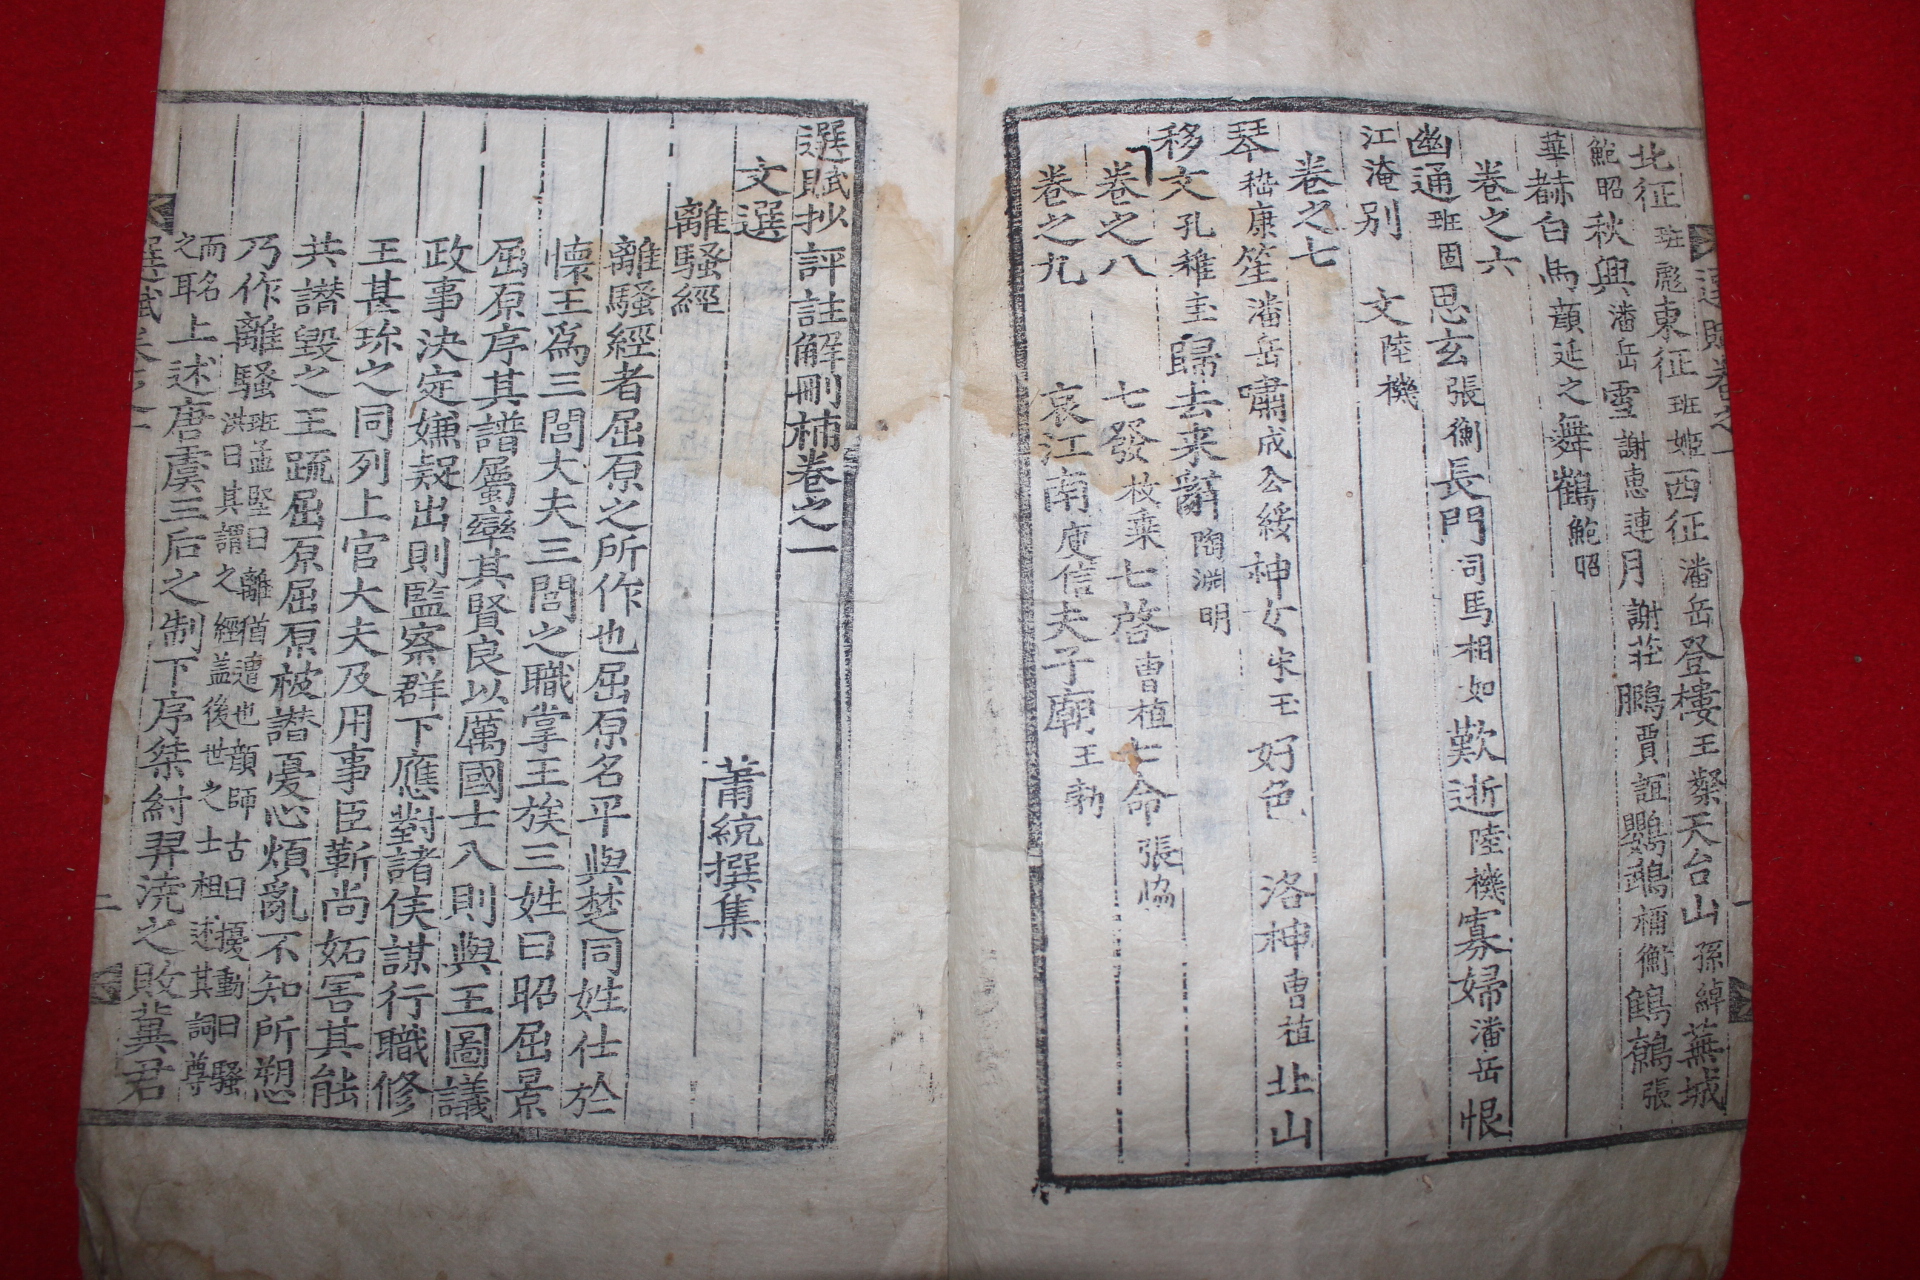 北征班彪東征班姬西征潘岳登樓王粲天台山孫綽蕪城
鮑昭秋興潘岳雪謝惠連月謝莊鵬賈誼鸚鵡禰衡鷦鷯張
華赭白馬顔延之舞鶴鮑昭
卷之六
幽通班固思玄張衡長門司馬相如歎逝陸機寡婦潘岳恨
江淹別 文陸機
卷之七
琴嵇康笙潘岳嘯成公綏神女宋玉好色 洛神曹植北山
移文孔稚圭歸去来辭陶淵明
卷之八 七發枚乗七啓曹植七命張恊
卷之九 哀江南庾信夫子廟王勃
選賦抄評註解刪補卷之一
文選 蕭統撰集
離騷經
離騷經者屈原之所作也屈原名平與楚同姓仕於
懷王爲三閭大夫三閭之職掌王族三姓曰昭屈景
屈原序其譜屬率其賢良以厲國士入則與王圖議
政事決定嫌疑出則監察群下應對諸侯謀行職修
王甚珎之同列上官大夫及用事臣靳尚妬害其能
共譖毀之王疏屈原屈原被譖憂心煩亂不知所愬
乃作離騷班孟堅曰離猶遭也顔師古曰擾動曰騷
洪曰其謂之經盖後世之士祖述其詞尊
而名
之耳上述唐虞三后之制下序桀紂羿澆之敗冀君